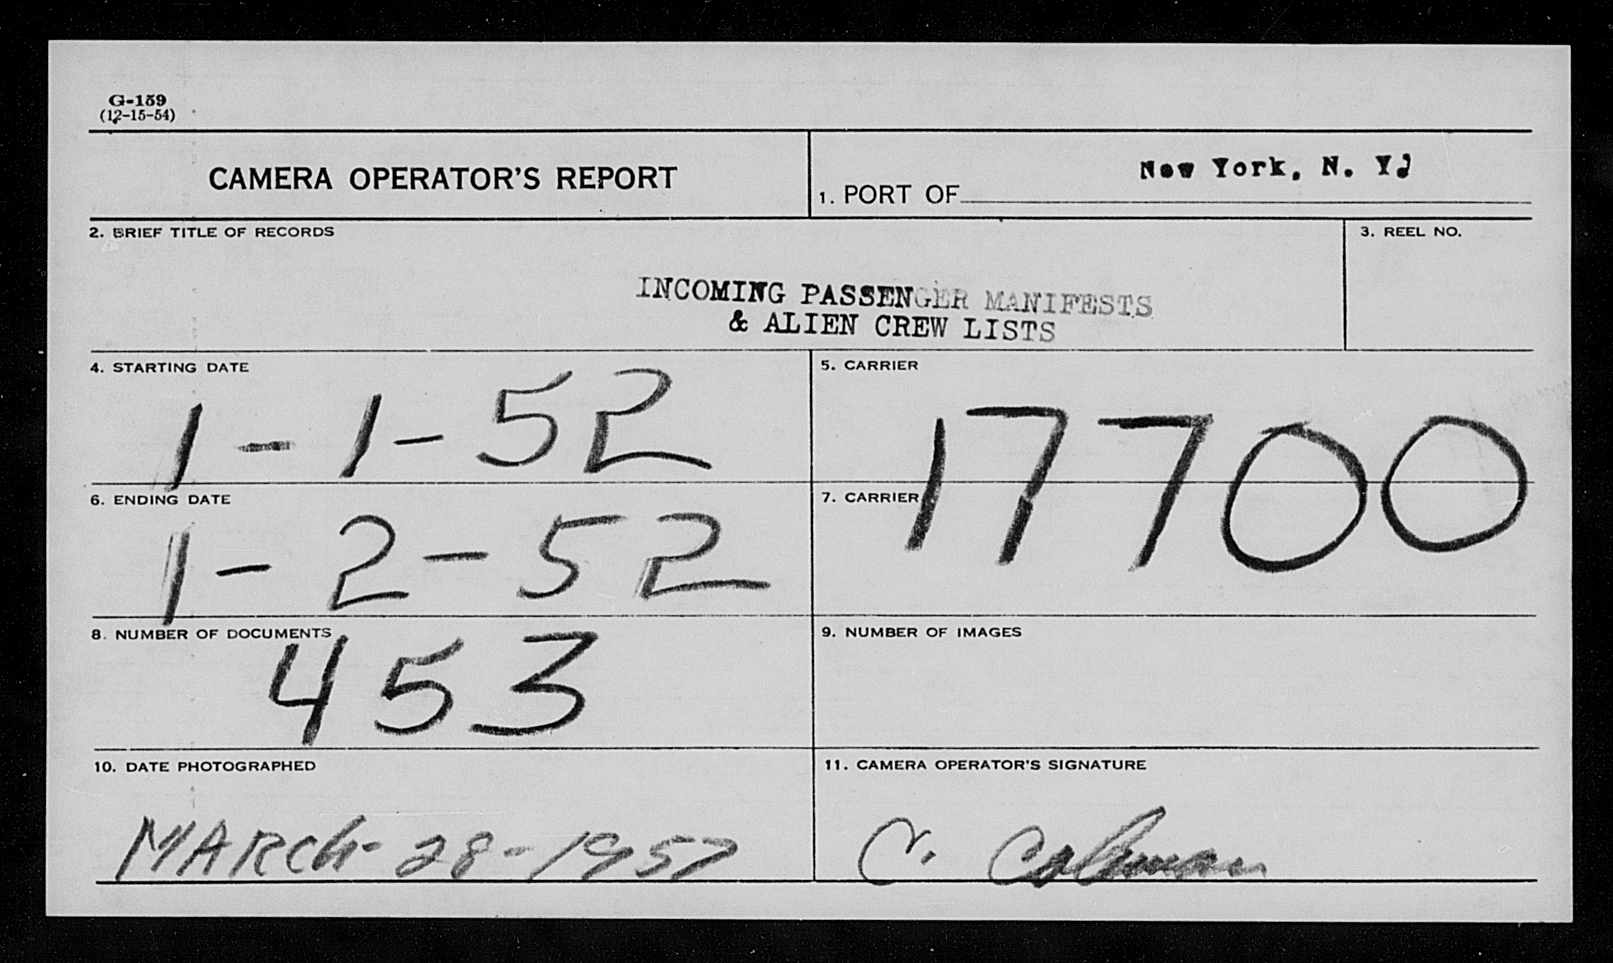 G-159
(12-15-54)
CAMERA OPERATOR'S REPORT
1. PORT OF New York, N. Y.
2. BRIEF TITLE OF RECORDS
3. REEL NO.
INCOMING PASSENGER MANIFESTS
& ALIEN CREW LISTS
4. STARTING DATE
1-1-52
5. CARRIER
17700
6. ENDING DATE
1-2-52
7. CARRIER
8. NUMBER OF DOCUMENTS
453
9. NUMBER OF IMAGES
10. DATE PHOTOGRAPHED
MARCH-28-1957
11. CAMERA OPERATOR'S SIGNATURE
C. Coleman